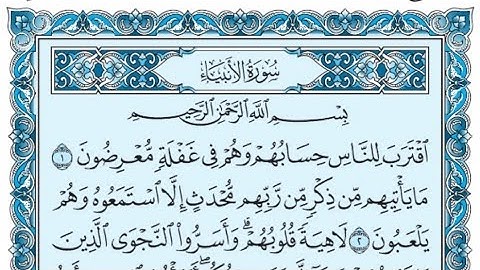 سُورَةُ الأَنبِيَاءِ
بِسْمِ اللَّهِ الرَّحْمَٰنِ الرَّحِيمِ
اقْتَرَبَ لِلنَّاسِ حِسَابُهُمْ وَهُمْ فِي غَفْلَةٍ مُّعْرِضُونَ ١
مَا يَأْتِيهِم مِّن ذِكْرٍ مِّن رَّبِّهِم مُّحْدَثٍ إِلَّا اسْتَمَعُوهُ وَهُمْ
يَلْعَبُونَ ٢ لَاهِيَةً قُلُوبُهُمْ ۗ وَأَسَرُّوا النَّجْوَى الَّذِينَ